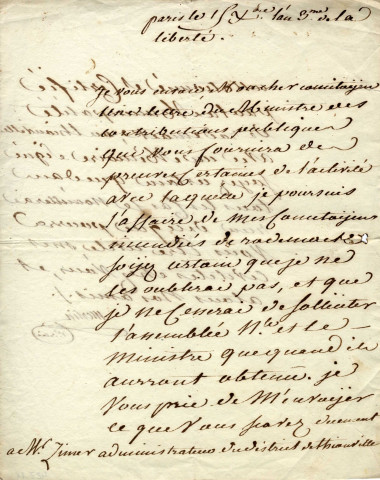 paris le 15 Xbre l'an 3me de la
liberté.
je vous envoie Mon cher comitoÿen
une lettre du Ministre des
contributions publiques
qui vous fournira des
preuves certaines de l'activité
avec laquelle je poursuis
l'affaire de Mes Comitoÿens
incendiés de rodemack
soiÿez certain que je ne
les oublirai pas, et que
je ne Cesserai de solliciter
l'assemblée Nle et le
Ministre que quand ils
aurront obtenu. je
Vous prie de M'envoÿer
ce que Vous savez dument
a Mr Zimer administrateur du district de thionville